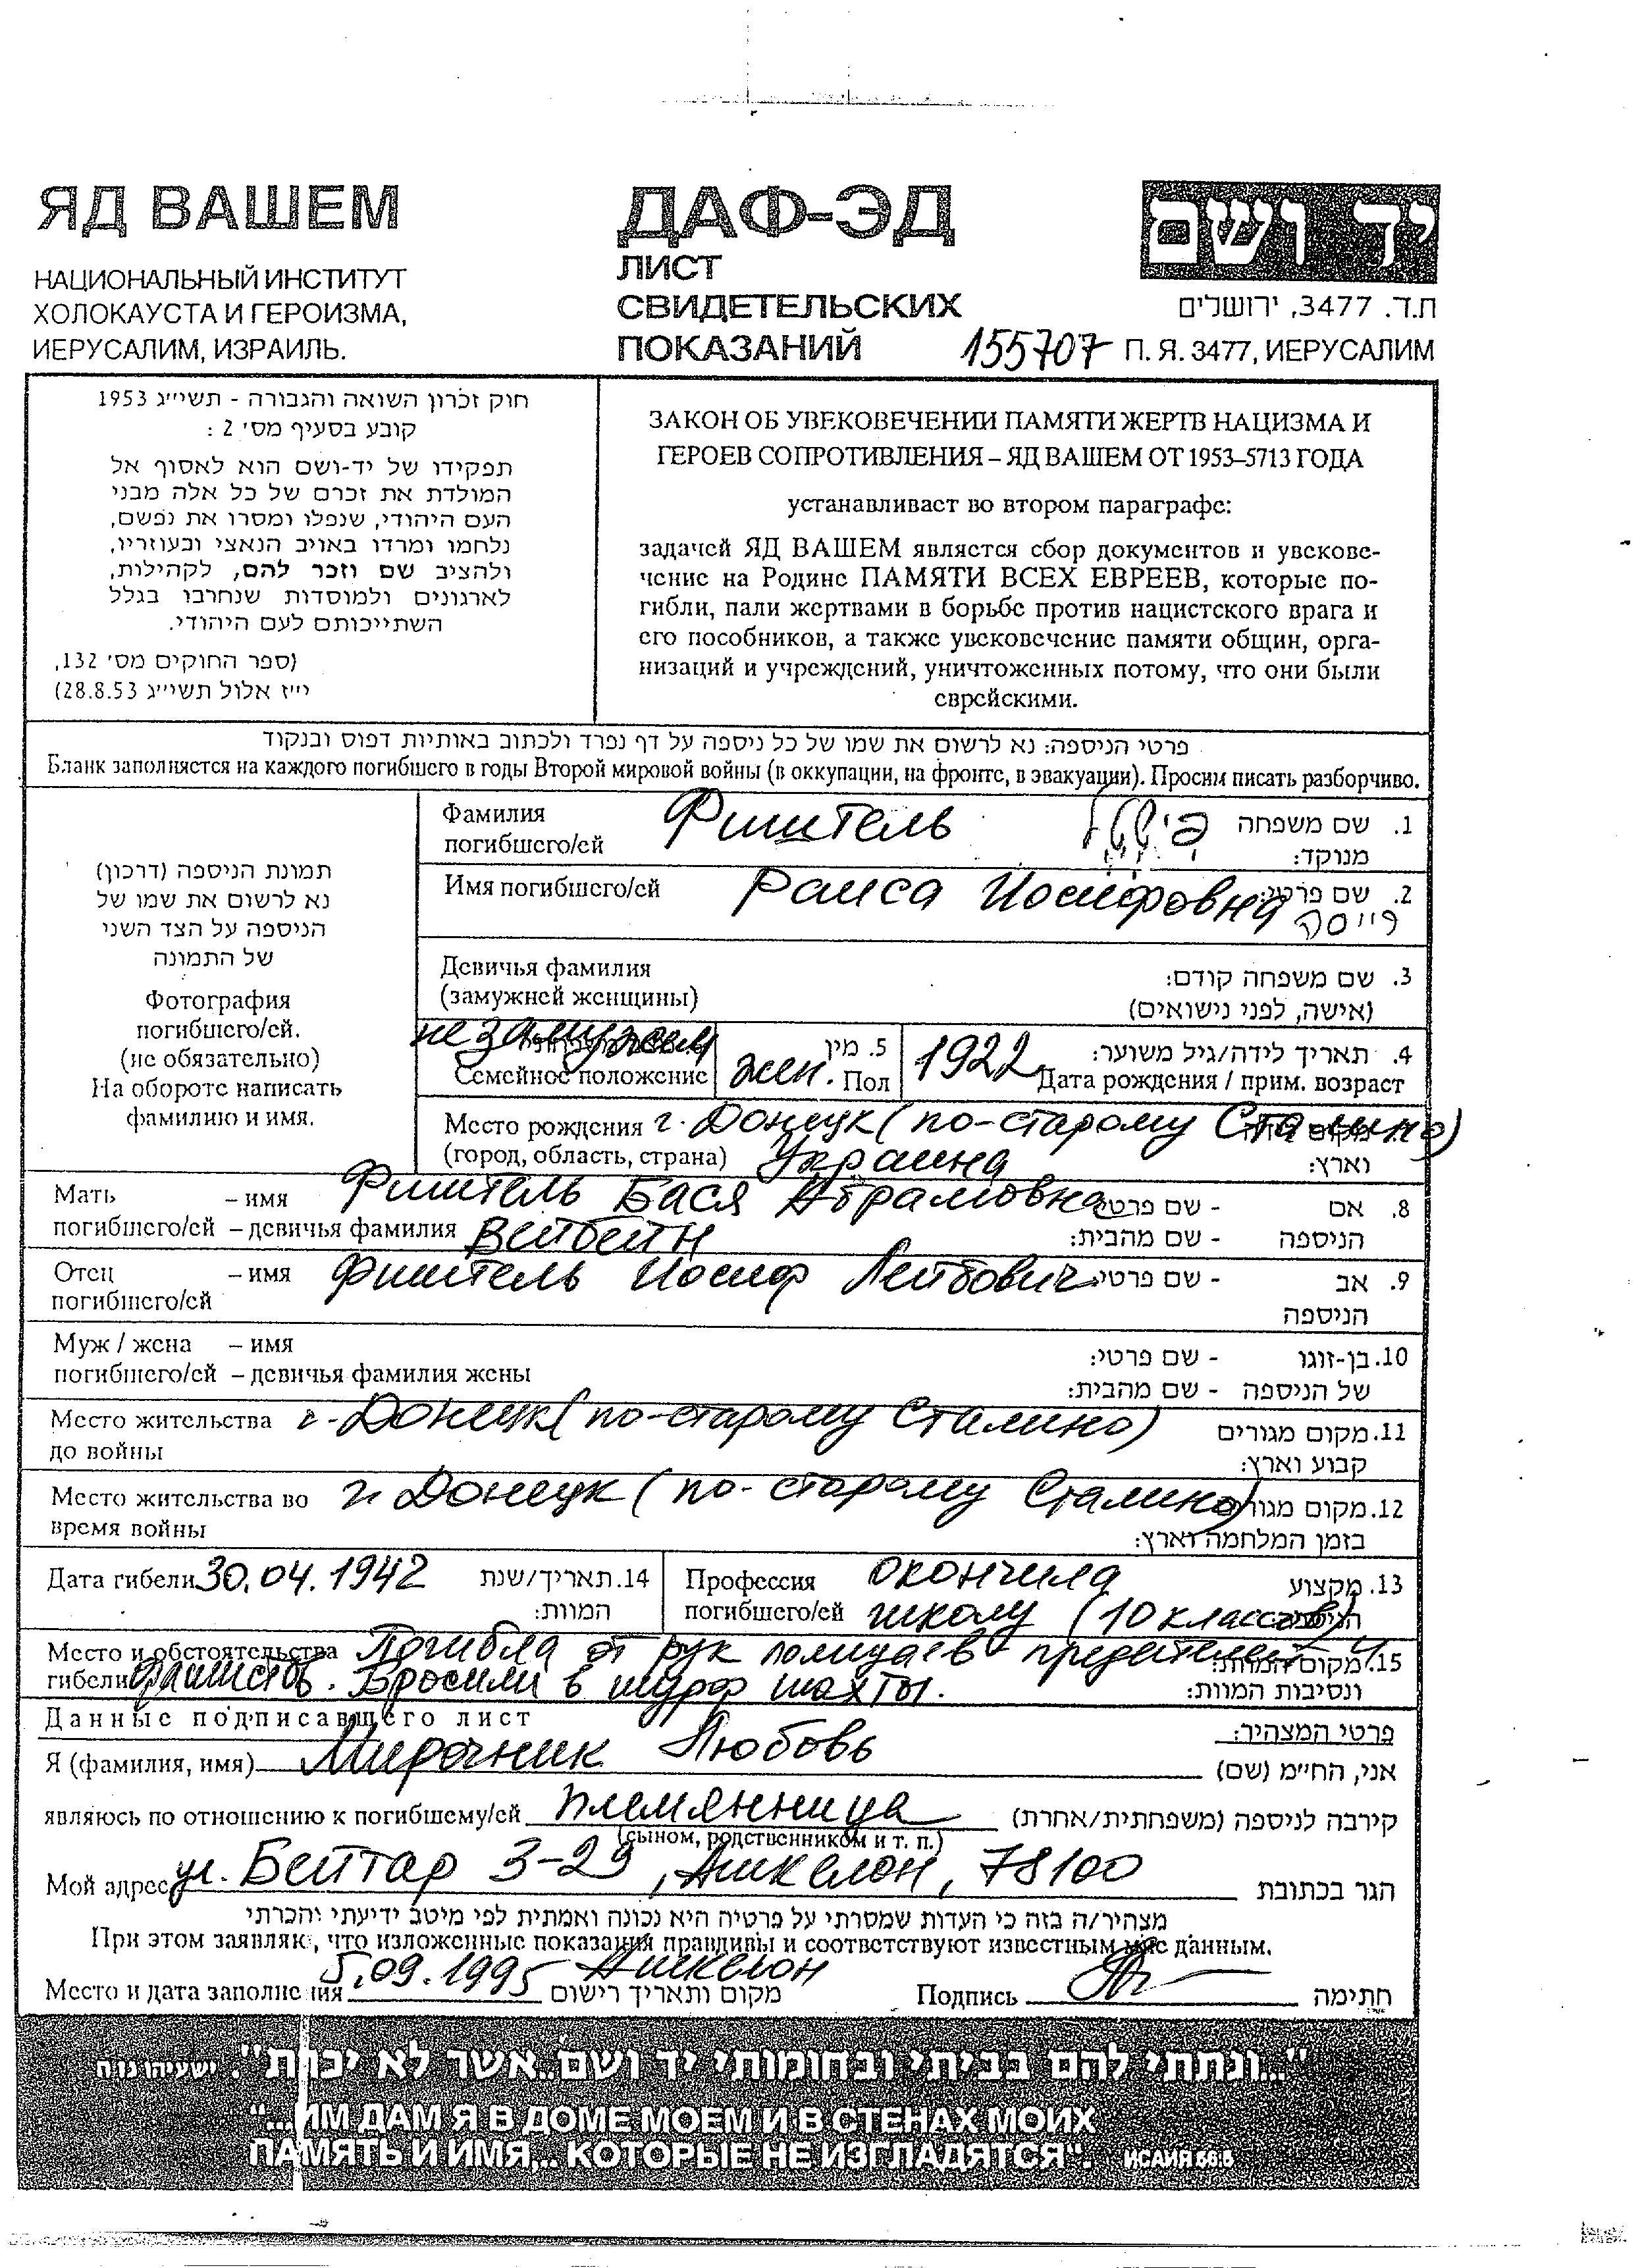 ЯД ВАШЕМ
НАЦИОНАЛЬНЫЙ ИНСТИТУТ
ХОЛОКАУСТА И ГЕРОИЗМА,
ИЕРУСАЛИМ, ИЗРАИЛЬ.
ДАФ-ЭД
ЛИСТ
СВИДЕТЕЛЬСКИХ
ПОКАЗАНИЙ
155707
יד ושם
ת.ד. 3477, ירושלים
П. Я. 3477, ИЕРУСАЛИМ
חוק זכרון השואה והגבורה - תשי״ג 1953
קובע בסעיף מס׳ 2 :
תפקידו של יד-ושם הוא לאסוף אל
המולדת את זכרם של כל אלה מבני
העם היהודי, שנפלו ומסרו את נפשם,
נלחמו ומרדו באויב הנאצי ובעוזריו,
ולהציב שם וזכר להם, לקהילות,
לארגונים ולמוסדות שנחרבו בגלל
השתייכותם לעם היהודי.
(ספר החוקים מס׳ 132,
י״ז אלול תשי״ג 28.8.53)
ЗАКОН ОБ УВЕКОВЕЧЕНИИ ПАМЯТИ ЖЕРТВ НАЦИЗМА И
ГЕРОЕВ СОПРОТИВЛЕНИЯ – ЯД ВАШЕМ ОТ 1953–5713 ГОДА
устанавливает во втором параграфе:
задачей ЯД ВАШЕМ является сбор документов и увекове-
чение на Родине ПАМЯТИ ВСЕХ ЕВРЕЕВ, которые по-
гибли, пали жертвами в борьбе против нацистского врага и
его пособников, а также увековечение памяти общин, орга-
низаций и учреждений, уничтоженных потому, что они были
еврейскими.
פרטי הניספה: נא לרשום את שמו של כל ניספה על דף נפרד ולכתוב באותיות דפוס ובנקוד
Бланк заполняется на каждого погибшего в годы Второй мировой войны (в оккупации, на фронте, в эвакуации). Просим писать разборчиво.
תמונת הניספה (דרכון)
נא לרשום את שמו של
הניספה על הצד השני
של התמונה
Фотография
погибшего/ей.
(не обязательно)
На обороте написать
фамилию и имя.
Фамилия погибшего/ей Фиштель פישטל 1. שם משפחה
מנוקד:
Имя погибшего/ей Раиса Иосифовна 2. שם פרטי:
רייסה
Девичья фамилия 3. שם משפחה קודם:
(замужней женщины) (אישה, לפני נישואים)
не замужем
Семейное положение
жен. 5. מין
Пол
1922 4. תאריך לידה/גיל משוער:
Дата рождения / прим. возраст
Место рождения г. Донецк (по-старому Сталино)
(город, область, страна) Украина וארץ:
Мать – имя Фиштель Бася Абрамовна - שם פרטי 8. אם
погибшего/ей – девичья фамилия Вейбейн - שם מהבית: הניספה
Отец – имя Фиштель Иосиф Лейбович - שם פרטי 9. אב
погибшего/ей הניספה
Муж / жена – имя - שם פרטי: 10. בן-זוגו
погибшего/ей – девичья фамилия жены - שם מהבית: של הניספה
Место жительства г. Донецк (по-старому Сталино) 11. מקום מגורים
до войны קבוע וארץ:
Место жительства во г. Донецк (по-старому Сталино) 12. מקום מגורים
время войны בזמן המלחמה וארץ:
Дата гибели 30.04.1942 14. תאריך/שנת
המוות:
Профессия окончила 13. מקצוע
погибшего/ей школу (10 классов)
Место и обстоятельства Погибла от рук полицаев предателей и 15. מקום המוות:
гибели фашистов. Бросили в шурф шахты. ונסיבות המוות:
Данные подписавшего лист פרטי המצהיר:
Я (фамилия, имя) Мирочник Любовь אני, הח״מ (שם)
являюсь по отношению к погибшему/ей племянница קירבה לניספה (משפחתית/אחרת)
(сыном, родственником и т. п.)
Мой адрес ул. Бейтар 3-29, Ашкелон, 78100 הגר בכתובת
מצהיר/ה בזה כי העדות שמסרתי על פרטיה היא נכונה ואמתית לפי מיטב ידיעתי והכרתי
При этом заявляю, что изложенные показания правдивы и соответствуют известным мне данным.
Место и дата заполнения 5.09.1995 Ашкелон מקום ותאריך רישום Подпись חתימה
"...ונתתי להם בביתי ובחומותי יד ושם...אשר לא יכרת". ישעיהו נו:ה
"...ИМ ДАМ Я В ДОМЕ МОЕМ И В СТЕНАХ МОИХ
ПАМЯТЬ И ИМЯ... КОТОРЫЕ НЕ ИЗГЛАДЯТСЯ". ИСАИЯ 56:5